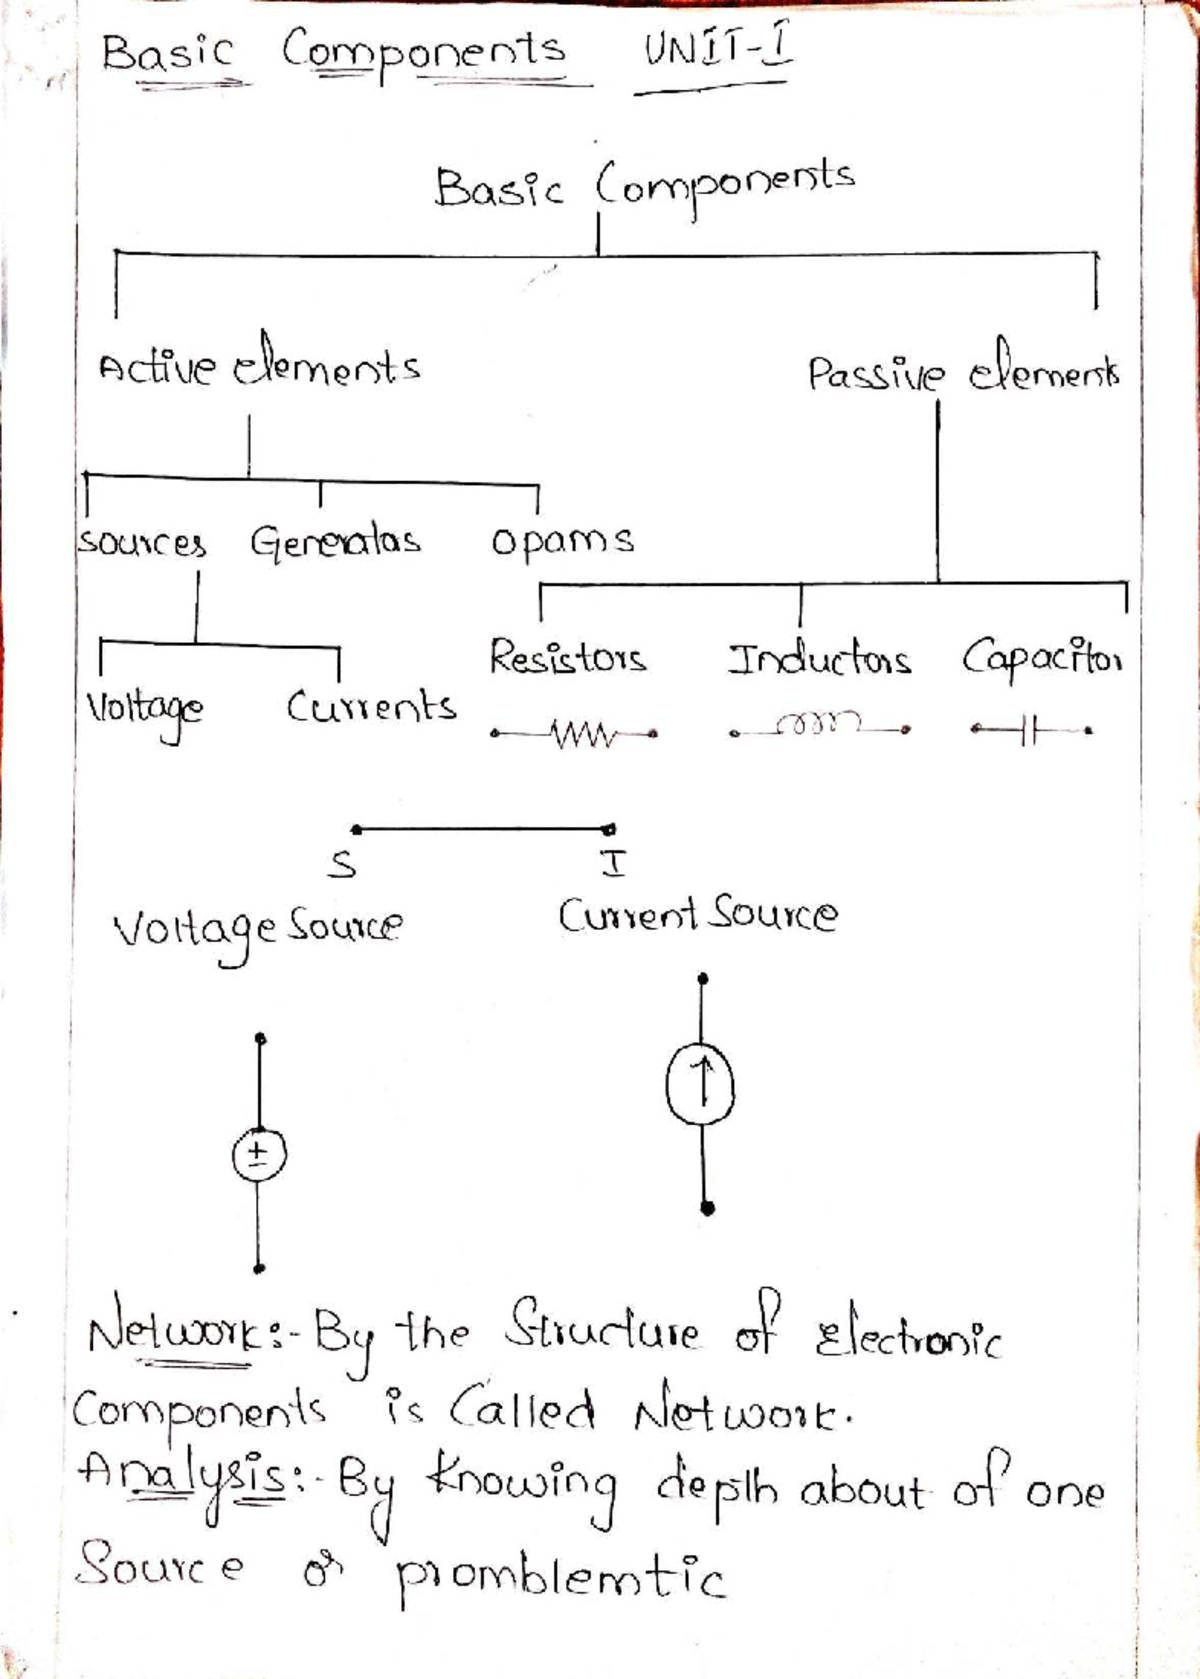 Basic Components UNIT-I
Basic Components
Active elements
Passive elements
sources Generatas opams
Resistors Inductors Capacitor
Voltage Currents
S I
Voltage Source
Current Source
±
Network:- By the Structure of Electronic
Components is Called Network.
Analysis:- By knowing depth about of one
Source or promblemtic